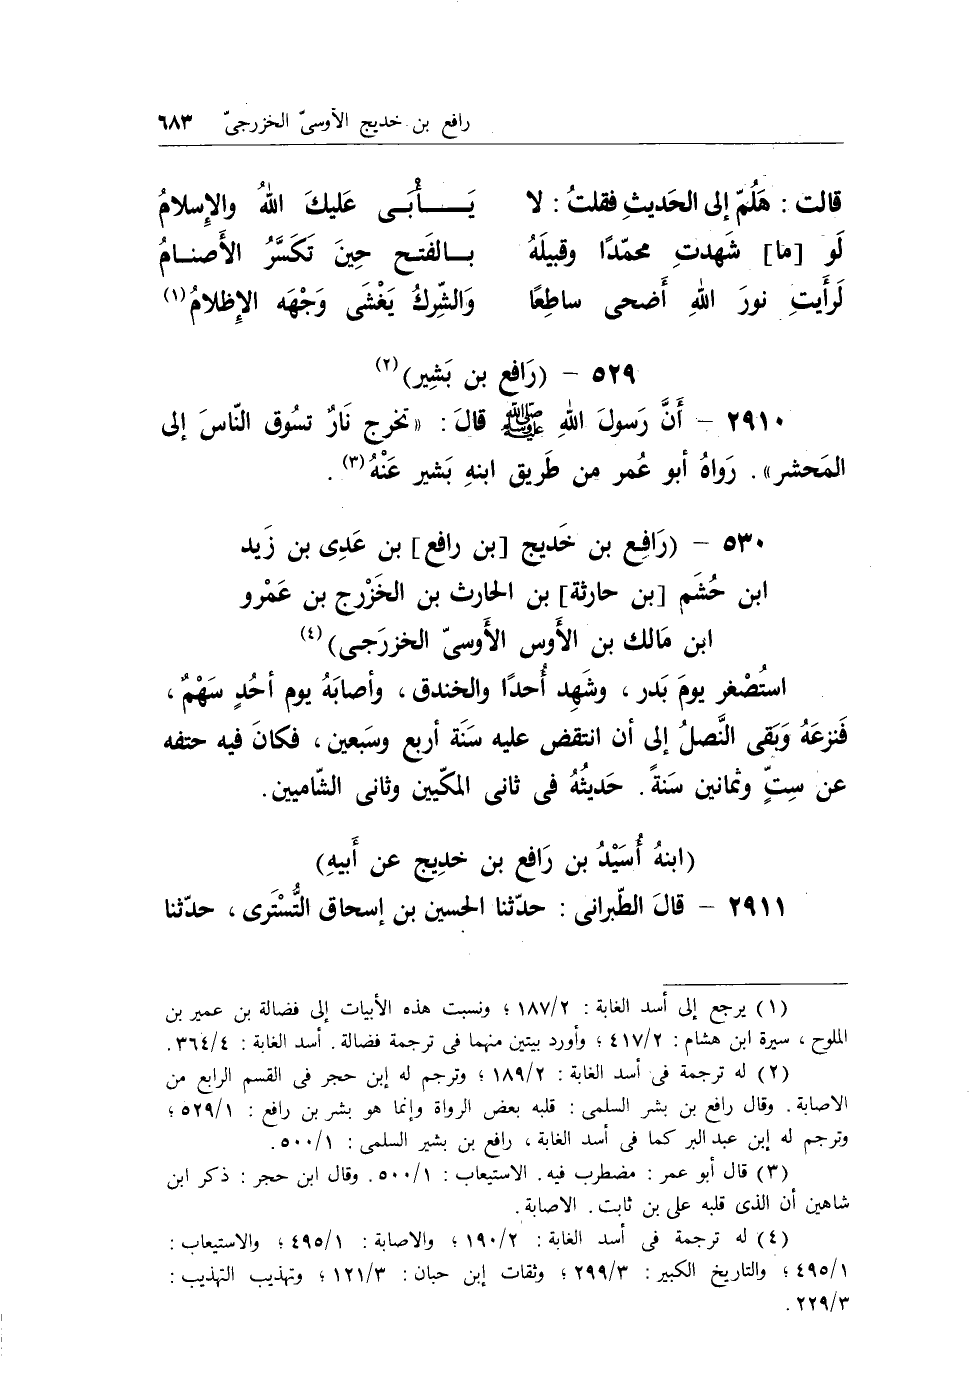 رافع بن خديج الأوسىّ الخزرجىّ ٦٨٣
قالت : هَلُمّ إلى الحَديثِ فقلتُ : لا يَـــأْبَـى عَليكَ اللهُ والإِسلامُ
لَو [ما] شَهدتِ محمّدًا وقبيلَهُ بــالفَتـح حِينَ تَكَسَّرُ الأَصنـامُ
لَرأَيتِ نورَ اللهِ أَضحى ساطِعًا وَالشِّركُ يَغْشَى وَجْهَه الإِظلامُ(١)
٥٢٩ – (رَافع بن بَشِير)(٢)
٢٩١٠ – أَنَّ رَسولَ اللهِ ﷺ قالَ : «تخرج نَارٌ تسُوق النّاسَ إلى
المَحشر» . رَواهُ أبو عُمر من طَريق ابنهِ بَشير عَنْهُ(٣) .
٥٣٠ – (رَافِع بن خَديج [بن رافع] بن عَدِى بن زَيد
ابن حُشَم [بن حارثة] بن الحارث بن الخَزْرج بن عَمْرو
ابن مَالك بن الأَوس الأَوسىّ الخزرَجـى)(٤)
استُصْغر يومَ بَدر ، وشَهِد أُحدًا والخندق ، وأصابَهُ يوم أحُدٍ سَهْمٌ ،
فَنزعَهُ وَبَقى النَّصلُ إلى أن انتقض عليه سَنَة أربع وسَبعين ، فكانَ فيه حتفه
عن سِتٍّ وثمانين سَنةً . حَديثُهُ فى ثانى المكّيين وثانى الشّاميين .
(ابنهُ أُسَيْدُ بن رَافع بن خديج عن أَبيهِ)
٢٩١١ – قالَ الطّبرانى : حدّثنا الحسين بن إسحاق التُّسْتَرى ، حدّثنا
(١) يرجع إلى أسد الغابة : ١٨٧/٢ ؛ ونسبت هذه الأبيات إلى فضالة بن عمير بن
الملوح ، سيرة ابن هشام : ٤١٧/٢ ؛ وأورد بيتين منهما فى ترجمة فضالة . أسد الغابة : ٣٦٤/٤ .
(٢) له ترجمة فى أسد الغابة : ١٨٩/٢ ؛ وترجم له إبن حجر فى القسم الرابع من
الاصابة . وقال رافع بن بشر السلمى : قلبه بعض الرواة وإنما هو بشر بن رافع : ٥٢٩/١ ؛
وترجم له إبن عبد البر كما فى أسد الغابة ، رافع بن بشير السلمى : ٥٠٠/١ .
(٣) قال أبو عمر : مضطرب فيه . الاستيعاب : ٥٠٠/١ . وقال ابن حجر : ذكر ابن
شاهين أن الذى قلبه على بن ثابت . الاصابة .
(٤) له ترجمة فى أسد الغابة : ١٩٠/٢ ؛ والاصابة : ٤٩٥/١ ؛ والاستيعاب :
٤٩٥/١ ؛ والتاريخ الكبير : ٢٩٩/٣ ؛ وثقات إبن حبان : ١٢١/٣ ؛ وتهذيب التهذيب :
٢٢٩/٣ .